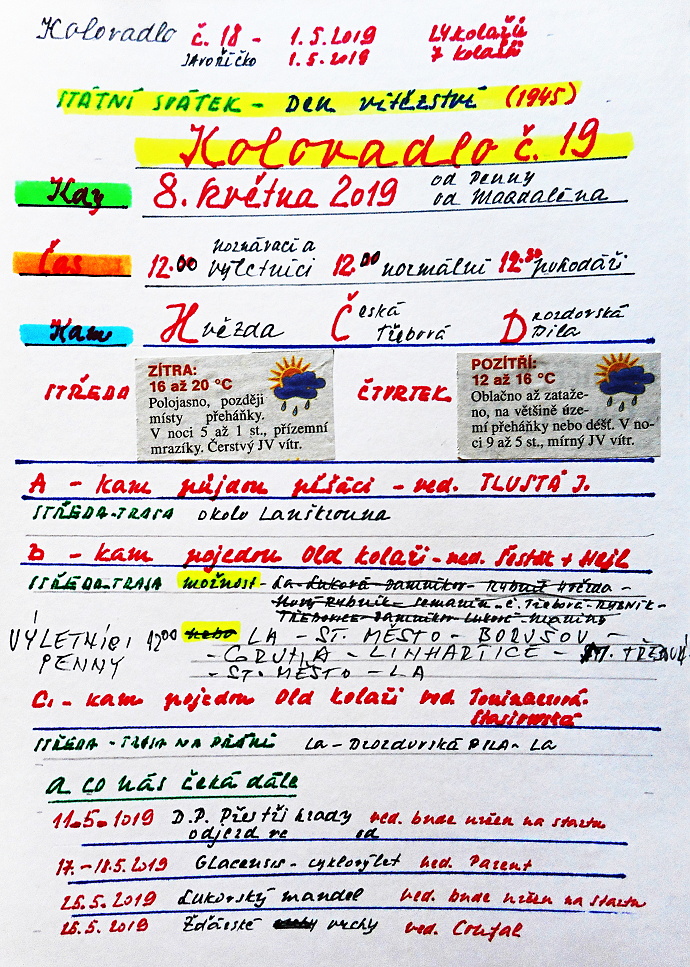 Koloradlo č. 18 - 1.5.2019 24 kolařů
Javoříčko 1.5.2019 7 kolařů
STÁTNÍ SVÁTEK - Den vítězství (1945)
Koloradlo č. 19
Kdy 8. května 2019 od Penny
od Magdaléna
Čas 12.00 poznávací a výletníci 12.00 normální 12.30 pohodáři
Kam Hvězda Česká Třebová Drozdovská Pila
STŘEDA
ZÍTRA:
16 až 20 °C
Polojasno, později
místy přeháňky.
V noci 5 až 1 st., přízemní
mrazíky. Čerstvý JV vítr.
ČTVRTEK
POZÍTŘÍ:
12 až 16 °C
Oblačno až zataže-
no, na většině úze-
mí přeháňky nebo déšť. V no-
ci 9 až 5 st., mírný JV vítr.
A - kam půjdou pěšáci - ved. TLUSTÁ J.
STŘEDA-TRASA okolo Lanškrouna
B - kam pojedou Old kolaři - ved. Šesták + Hejl
STŘEDA-TRASA možnost - La - Luková - Damníkov - Rybník Hvězda -
Nový Rybník - Semanín - Č. Třebová - RYBNÍK -
Třebovice - Damníkov - Luková
VÝLETNÍCI 12.00 nebo LA - ST. MĚSTO - BORUŠOV -
PENNY - GRUNA - LINHARTICE - M. TŘEBOVÁ
- ST. MĚSTO - LA
C. - kam pojedou Old kolaři ved.
STŘEDA - TRASA NA PŘÁNÍ La - Drozdovská PILA - La
a co nás čeká dále
11.5. 2019 D.P. Přes tři hrady ved. bude určen na startu
odjezd ve od
17. - 18.5. 2019 Glacensis - cyklovýlet ved. Parent
25.5. 2019 Lukovský mandel ved. bude určen na startu
25.5. 2019 Žďárské vrchy ved. Coufal